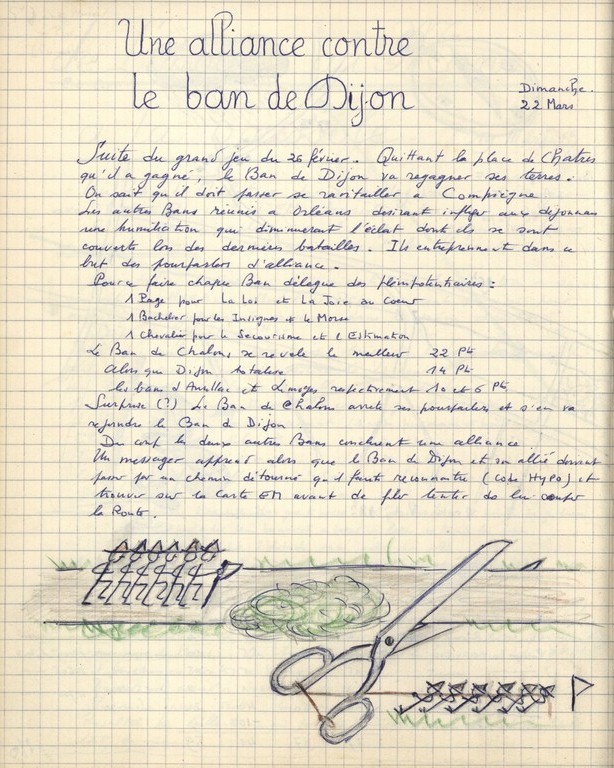 Une alliance contre
le ban de Dijon
Dimanche.
22 Mars
Suite du grand jeu du 26 février. Quittant la place de Chatres
qu'il a gagné, le Ban de Dijon va regagner ses terres.
On sait qu'il doit passer se ravitailler a Compiègne
Les autres Bans réunis a Orléans desirant infliger aux dijonnais
une humiliation qui diminueront l'éclat dont ils se sont
couverts lors des dernieres batailles. Ils entreprennent dans ce
but des pourparlers d'alliance.
Pour ce faire chaque Ban délègue des plénipotentiaires :
1 Page pour La Loi et La Joie au Coeur
1 Bachelier pour les Insignes et le Morse
1 Chevalier pour le Secourisme et l'Estimation
Le Ban de Chalons se revele le meilleur 22 Pts
Alors que Dijon totalise 14 Pts
les bans d'Aurillac et Limoges respectivement 10 et 6 Pts
Surprise (?) Le Ban de Chalons arrete ses pourparlers et s'en va
rejoindre le Ban de Dijon
Du coup les deux autres Bans concluent une alliance.
Un messager apprend alors que le Ban de Dijon et son allié doivent
passer par un chemin détourné qu'il faut reconnaitre (code Hypo) et
trouver sur la Carte EM avant de filer tenter de lui couper
la Route.